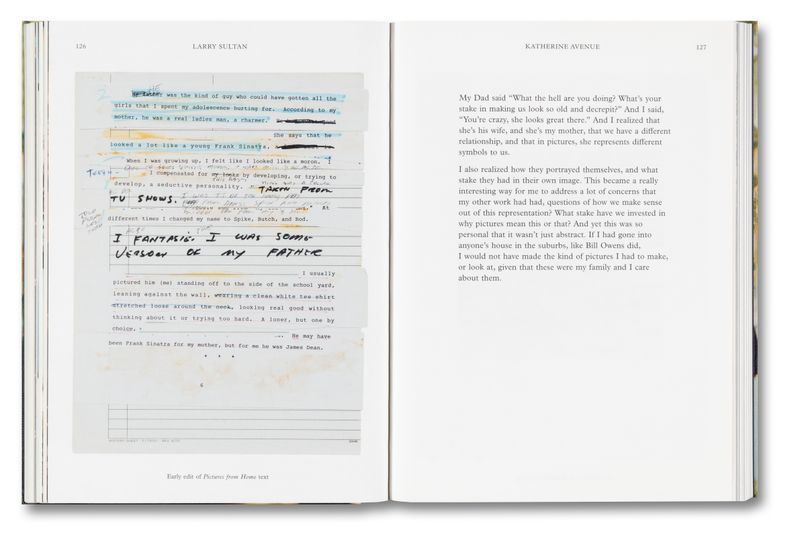 126
LARRY SULTAN
HE
was the kind of guy who could have gotten all the
girls that I spent my adolescence hurting for. According to my
mother, he was a real ladies man, a charmer.
she says that he
looked a lot like a young Frank Sinatra.
When I was growing up, I felt like I looked like a moron. I
I compensated for my looks by developing, or trying to
develop, a seductive personality. TAKEN FROM
TV SHOWS.
At
different times I changed my name to Spike, Butch, and Rod.
I FANTASIE I WAS SOME
VERSION OF MY FATHER
I usually
pictured him (me) standing off to the side of the school yard,
leaning against the wall, wearing a clean white tee shirt
stretched loose around the neck, looking real good without
thinking about it or trying too hard. A loner, but one by
choice.
He may have
been Frank Sinatra for my mother, but for me he was James Dean.
6
Early edit of Pictures from Home text
KATHERINE AVENUE
127
My Dad said “What the hell are you doing? What’s your
stake in making us look so old and decrepit?” And I said,
“You’re crazy, she looks great there.” And I realized that
she’s his wife, and she’s my mother, that we have a different
relationship, and that in pictures, she represents different
symbols to us.
I also realized how they portrayed themselves, and what
stake they had in their own image. This became a really
interesting way for me to address a lot of concerns that
my other work had had, questions of how we make sense
out of this representation? What stake have we invested in
why pictures mean this or that? And yet this was so
personal that it wasn’t just abstract. If I had gone into
anyone’s house in the suburbs, like Bill Owens did,
I would not have made the kind of pictures I had to make,
or look at, given that these were my family and I care
about them.